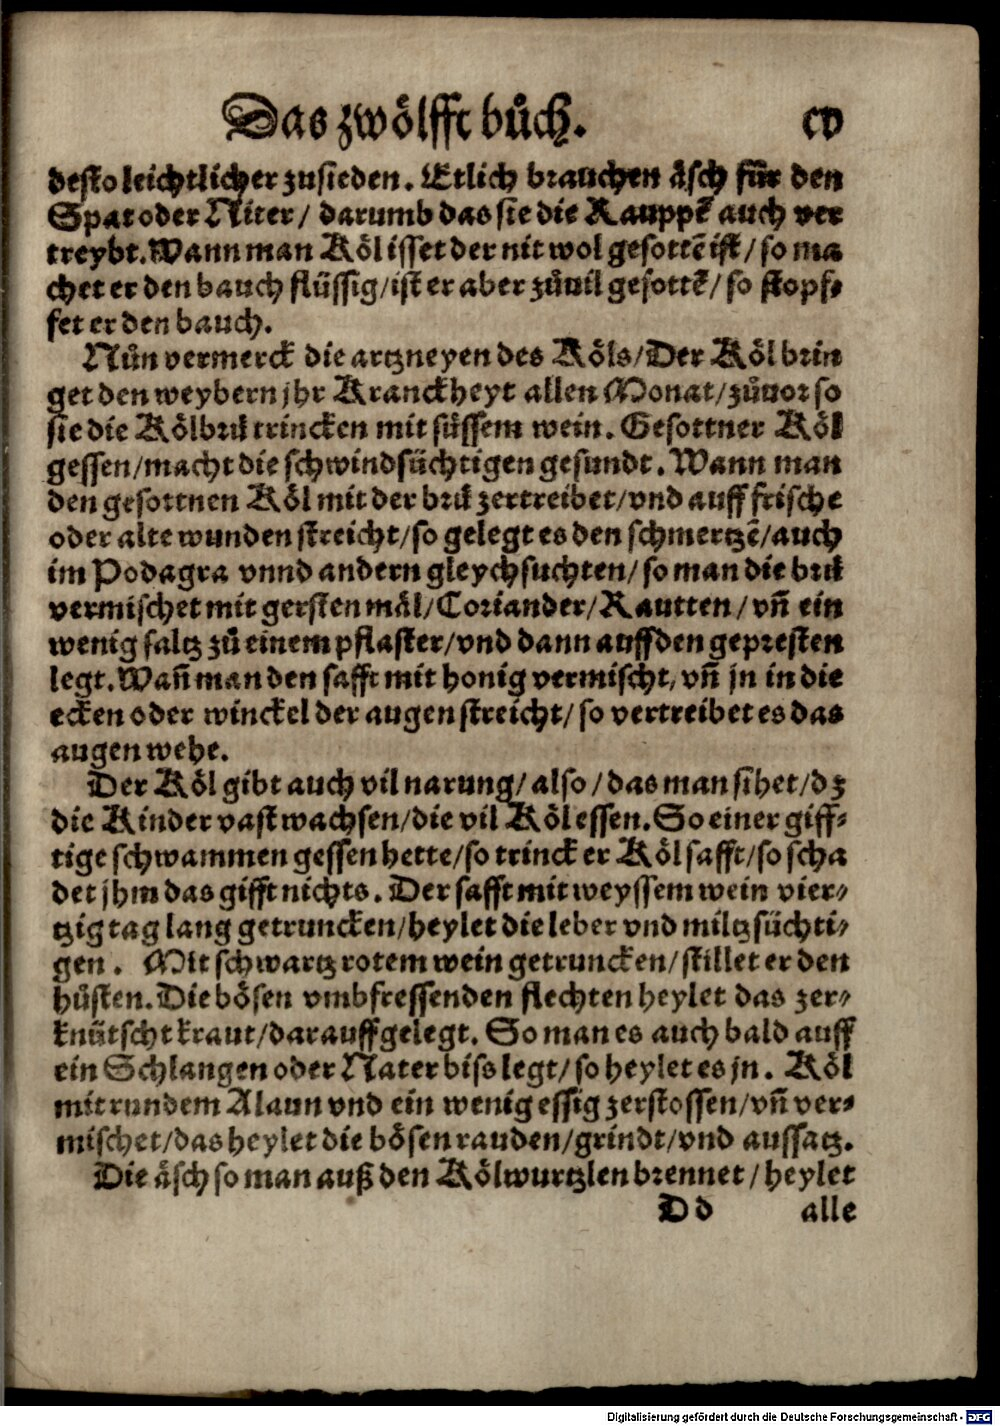 Das zwölfft bůch. cv
desto leichtlicher zusieden. Etlich brauchen äsch für den
Spat oder Niter/ darumb das sie die Rauppẽ auch ver
treybt. Wann man Köl isset der nit wol gesottẽ ist/ so ma
chet er den bauch flüssig/ ist er aber zůuil gesottẽ/ so stopf⸗
fet er den bauch.
Nůn vermerck die artzneyen des Köls/ Der Köl brin
get den weybern jhr Kranckheyt allen Monat/ zůuor so
sie die Kölbrü trincken mit süssem wein. Gesottner Köl
gessen/ macht die schwindsüchtigen gesundt. Wann man
den gesottnen Köl mit der brü zertreibet/ vnd auff frische
oder alte wunden streicht/ so gelegt es den schmertzẽ/ auch
im Podagra vnnd andern gleychsuchten/ so man die brü
vermischet mit gersten mäl/ Coriander/ Rautten/ vñ ein
wenig saltz zů einem pflaster/ vnd dann auff den gepresten
legt. Wañ man den safft mit honig vermischt, vñ jn in die
ecken oder winckel der augen streicht/ so vertreibet es das
augen wehe.
Der Köl gibt auch vil narung/ also/ das man sihet/ dz
die Kinder vast wachsen/ die vil Köl essen. So einer giff⸗
tige schwammen gessen hette/ so trinck er Kölsafft/ so scha
det jhm das gifft nichts. Der safft mit weyssem wein vier⸗
tzig tag lang getruncken/ heylet die leber vnd miltzsüchti⸗
gen. Mit schwartz rotem wein getruncken/ stillet er den
hůsten. Die bösen vmbfressenden flechten heylet das zer⸗
knütscht kraut/ darauff gelegt. So man es auch bald auff
ein Schlangen oder Nater biss legt/ so heylet es jn. Köl
mit rundem Alaun vnd ein wenig essig zerstossen/ vñ ver⸗
mischet/ das heylet die bösen rauden/ grindt/ vnd aussatz.
Die äsch so man auß den Kölwurtzlen brennet/ heylet
Dd alle
Digitalisierung gefördert durch die Deutsche Forschungsgemeinschaft - DFG